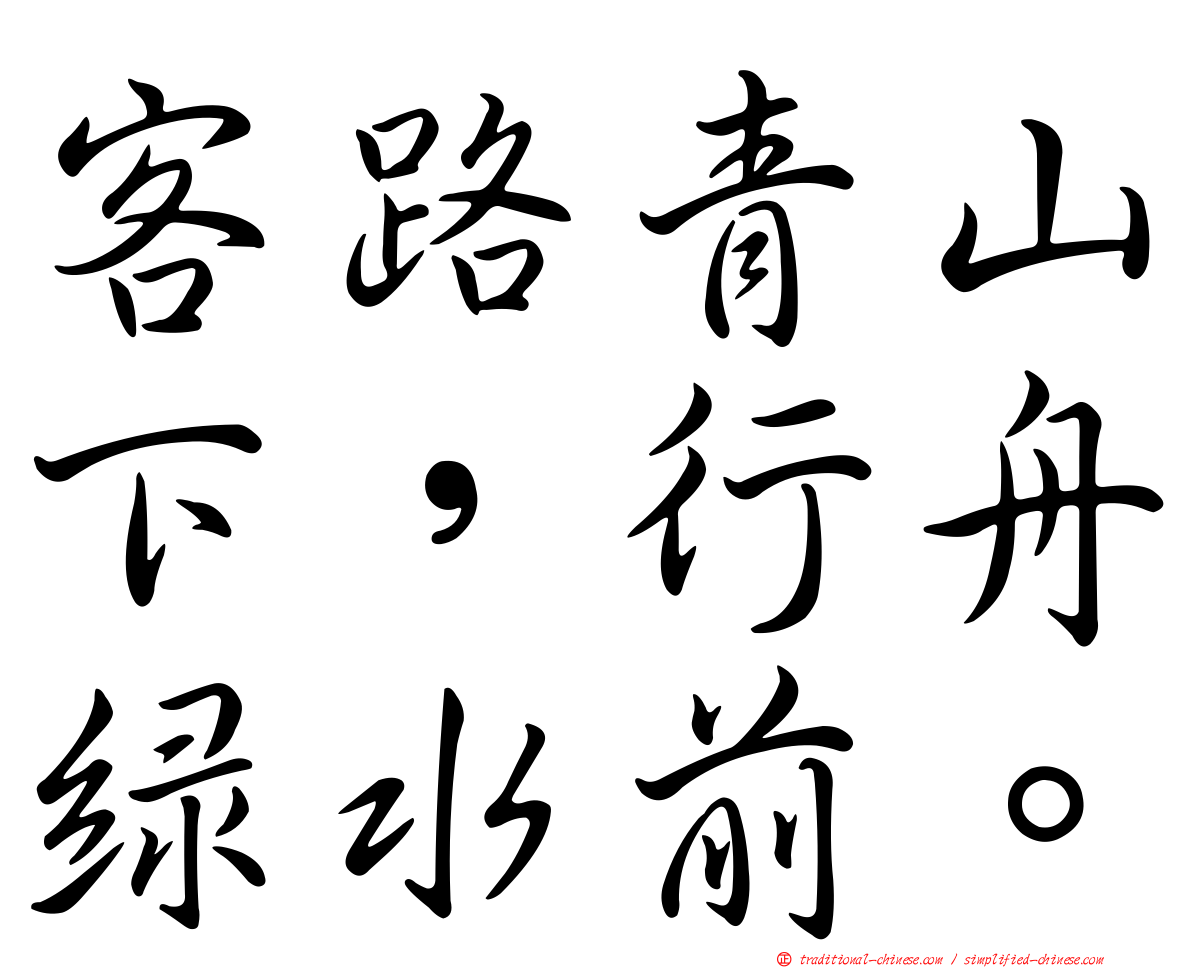 客路青山
下，行舟
绿水前。
㊣ traditional-chinese.com / simplified-chinese.com